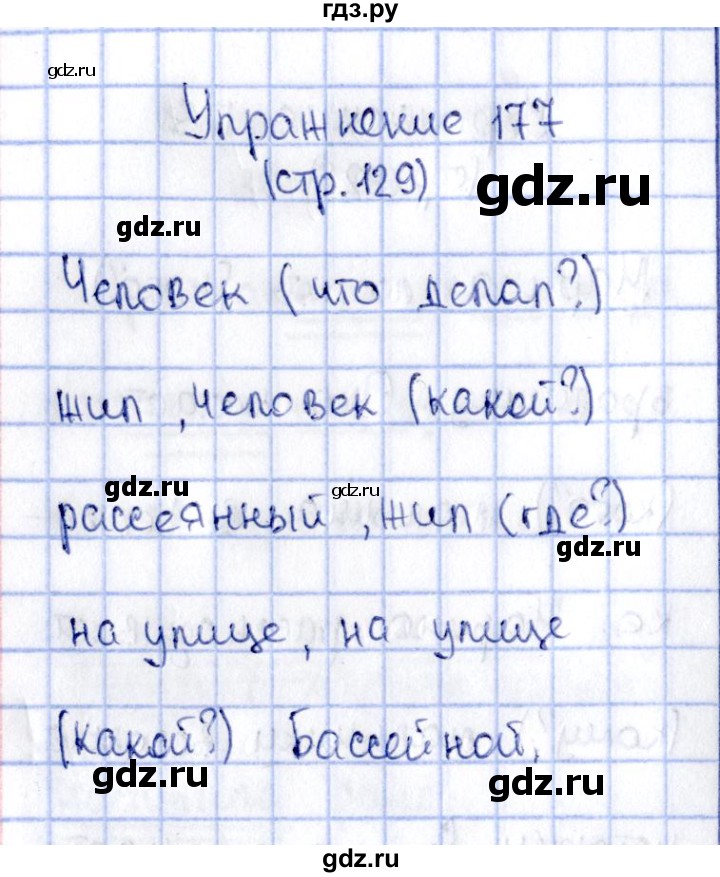 гдз.ру
gdz.ru
Упражнение 177
(стр. 129)
gdz.ru
gdz.ru
Человек (что делал?)
жил , человек (какой?)
gdz.ru
gdz.ru
рассеянный , жил (где?)
gdz.ru
на улице, на улице
(какой?) Бассейной.
gdz.ru
gdz.ru
gdz.ru